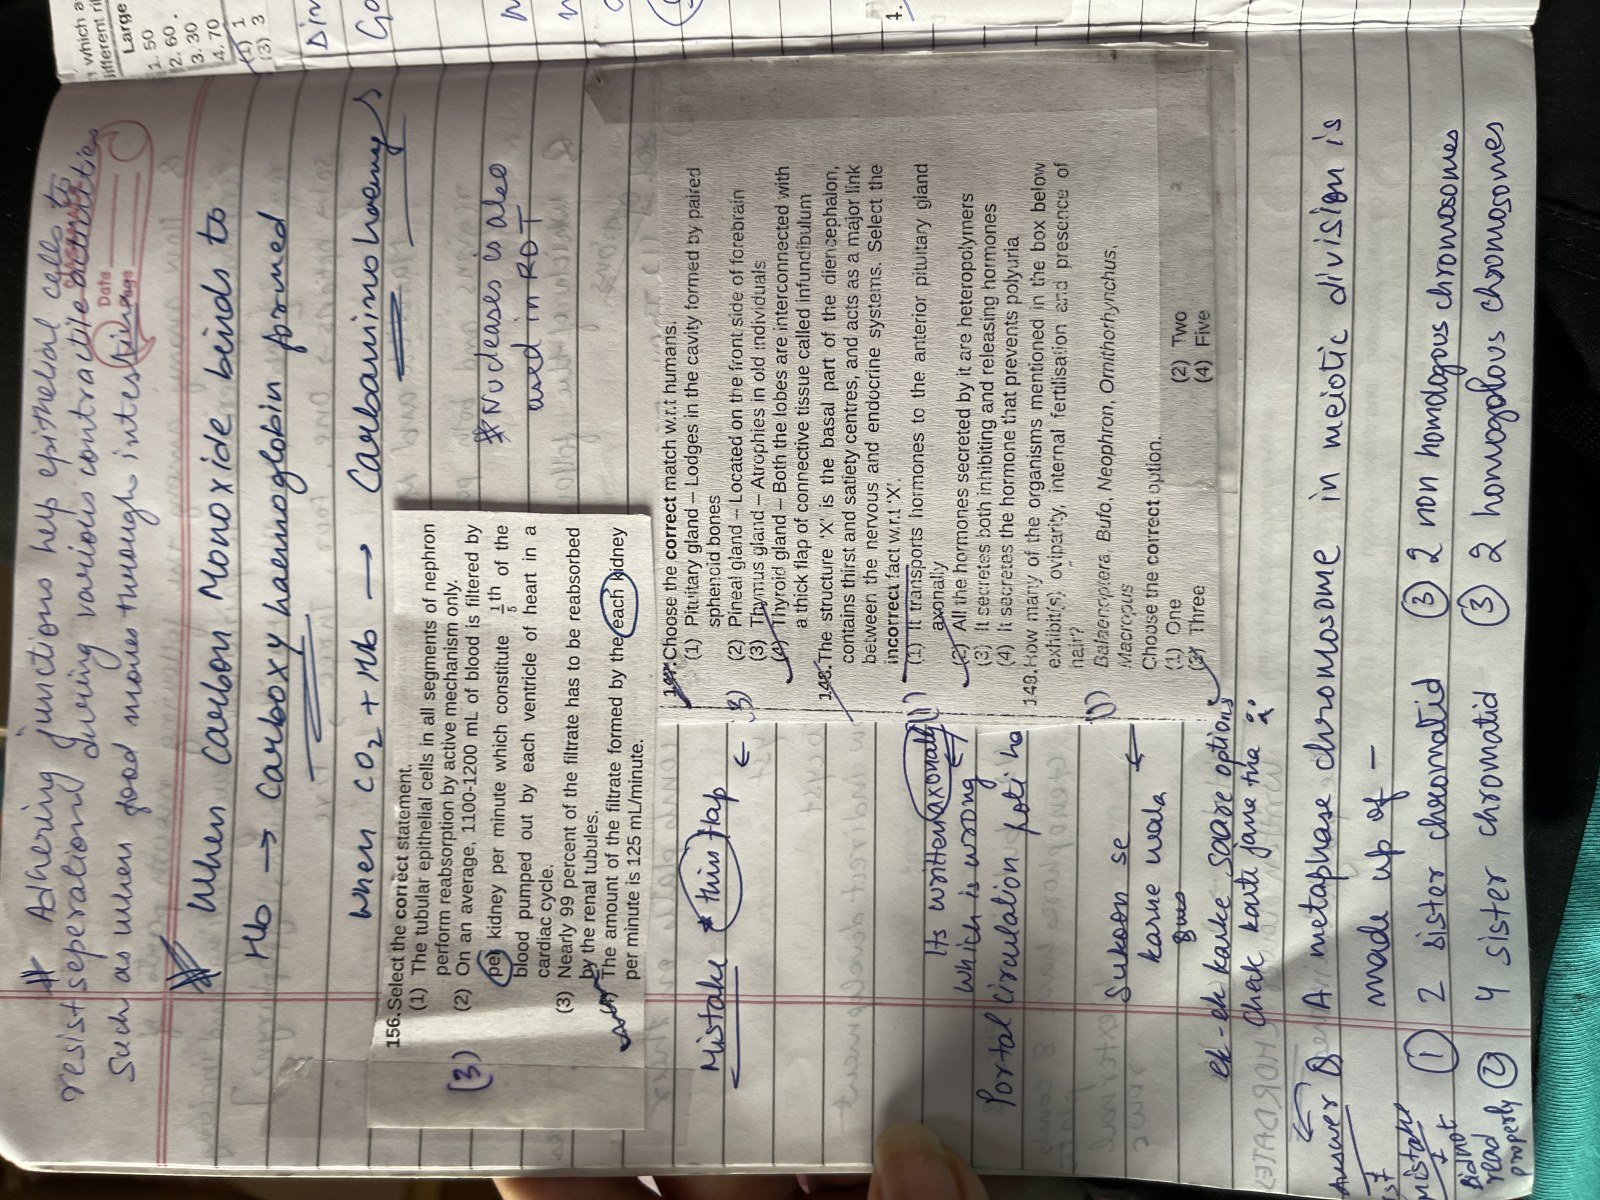 # Adhering junctions help epithelial cells to
resist seperationd during various contractile activities
such as when food moves through intestine
Date
Page
When Carbon Monoxide binds to
Hb → Carboxy haemoglobin formed
when CO2 + Hb → Carbamino haemg
* Nucleases is also
used in RDT
156. Select the correct statement.
(1) The tubular epithelial cells in all segments of nephron
perform reabsorption by active mechanism only.
(2) On an average, 1100-1200 mL of blood is filtered by
per kidney per minute which constitute 1/5 th of the
blood pumped out by each ventricle of heart in a
cardiac cycle.
(3) Nearly 99 percent of the filtrate has to be reabsorbed
by the renal tubules.
The amount of the filtrate formed by the each kidney
per minute is 125 mL/minute.
(3)
147. Choose the correct match w.r.t humans.
(1) Pituitary gland – Lodges in the cavity formed by paired
sphenoid bones
(2) Pineal gland – Located on the front side of forebrain
(3) Thymus gland – Atrophies in old individuals
(4) Thyroid gland – Both the lobes are interconnected with
a thick flap of connective tissue called infundibulum
148. The structure 'X' is the basal part of the diencephalon,
contains thirst and satiety centres, and acts as a major link
between the nervous and endocrine systems. Select the
incorrect fact w.r.t 'X'.
(1) It transports hormones to the anterior pituitary gland
axonally
(2) All the hormones secreted by it are heteropolymers
(3) It secretes both inhibiting and releasing hormones
(4) It secretes the hormone that prevents polyuria
149. How many of the organisms mentioned in the box below
exhibit(s) oviparity, internal fertilisation and presence of
hair?
Balaenoptera, Bufo, Neophron, Ornithorhynchus,
Macropus
Choose the correct option.
(1) One (2) Two
(3) Three (4) Five
Mistake * thin flap ← 3)
Its written axonally (1)
which is wrong
Portal circulation hoti ha
Sukoon se ← (1)
karne wala
ek-ek karke saare options
check karte jane tha
Answer Q A metaphase chromosome in meiotic division is
made up of –
1st
Mistake
Did not
read
properly
(1) 2 sister chromatid (3) 2 non homologous chromosomes
(2) 4 sister chromatid (3) 2 homogolous chromosomes
which a
different ri
Large
1. 50
2. 60.
3. 30
4. 70
(1) 1
(3) 3